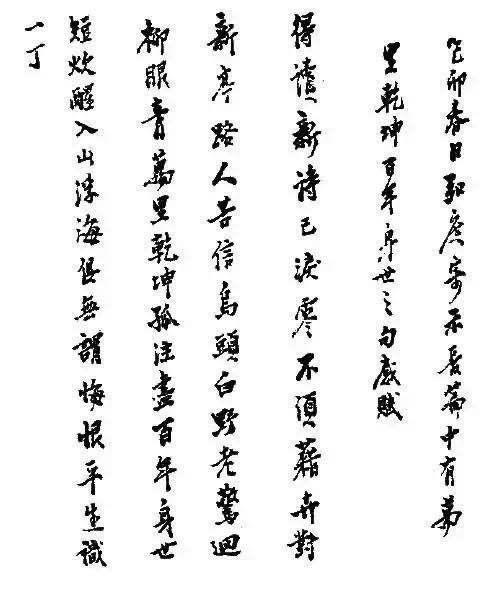 卯春日寄示長篇中有萬
里乾坤百年身世之句感賦
得讀新詩已淚零不須藉卉對
新亭路人苦信烏頭白野老驚迴
柳眼青萬里乾坤孤注盡百年身世
短炊醒入山浮海俱無謂悔恨平生識
一丁